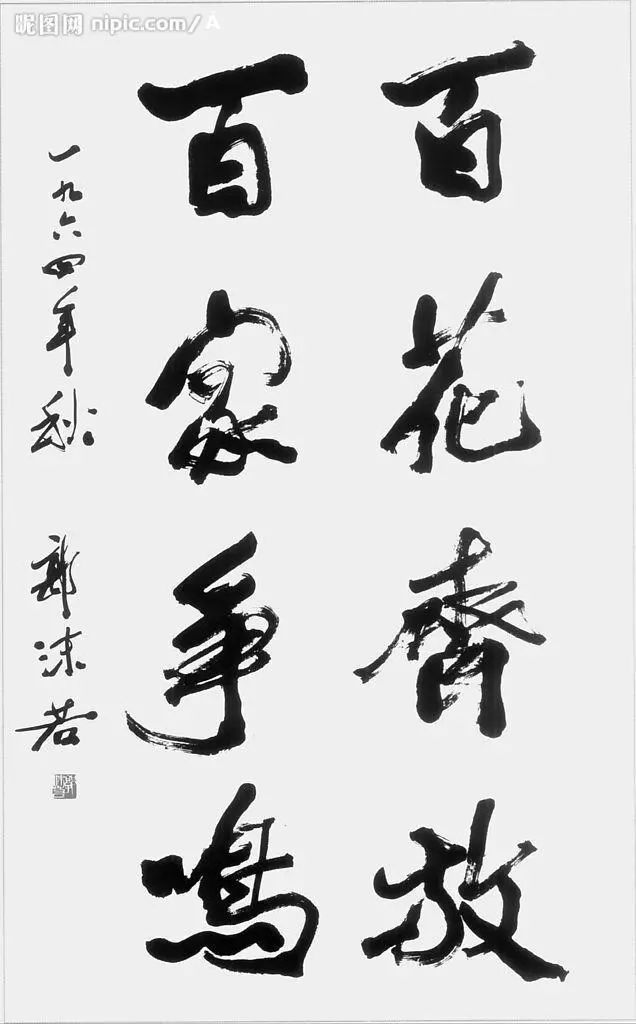 百花齊放
百家爭鳴
一九六四年秋
郭沫若
昵图网 nipic.com/A